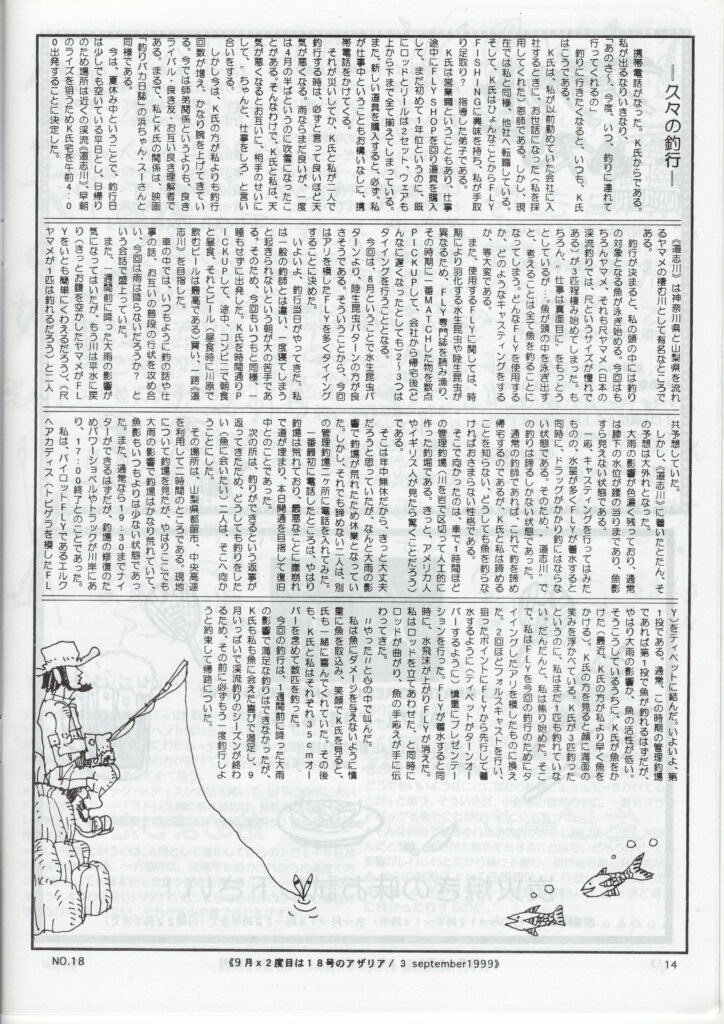 ―久々の釣行―
携帯電話がなった。K氏からである。
私が出るなりいきなり、
「あのさー、今度、いつ、釣りに連れて
行ってくれるの」
釣りに行きたくなると、いつも、K氏
はこうである。
K氏は、私が以前勤めていた会社に入
社するときに、お世話になった（私を採
用してくれた）恩師である。しかし、現
在では私と同様、他社へ転職している。
そして、K氏はひょんなことからFLY
FISHINGに興味を持ち、私が手取
り足取り？指導した弟子である。
K氏は営業職ということもあり、仕事
途中にFLY SHOPを回り道具を購入
して、まだ初めて1年位というのに、既
にロッドとリールは2セット、ウェアも
上から下まで全て揃えてしまっている。
また、新しい道具を購入すると、必ず、私
が仕事中ということもお構いなしに、携
帯電話をかけてくる。
それが災いしてか、K氏と私が二人で
釣行する時は、必ずと言って良いほど天
気が悪くなる。雨ならまだ良いが、一度
は4月の半ばというのに吹雪になったこ
とがある。そんなわけで、K氏と私は、天
気が悪くなるとお互いに、相手のせいに
して、"ちゃんと、仕事をしろ"と言い
合いをする。
しかし今は、K氏の方が私よりも釣行
回数が増え、かなり腕を上げてきてい
る。今では師弟関係というよりも、良き
ライバル・良き友・お互い良き理解者で
ある。まるで、私とK氏の関係は、映画
「釣りバカ日誌」の浜ちゃん・スーさんと
同様である。
今は、夏休み中ということで、釣行日
は少しでも空いている平日とし、日帰り
のため場所は近くの渓流《道志川》、早朝
のライズを狙うためK氏宅を午前4：0
0出発することに決定した。
《道志川》は神奈川県と山梨県を流れ
るヤマメの棲む川として有名なところで
ある。
釣行が決まると、私の頭の中には釣行
の対象となる魚が泳ぎ始める。今回はも
ちろんヤマメ、それも尺ヤマメ（日本の
渓流釣りでは、尺というサイズが憧れで
ある）が3匹程棲み始めてしまった。も
ちろん、"仕事は真面目に"をもっとう
としているが、"魚が頭の中を泳ぎ出す
と、考えることは全て魚を釣ることに
なってしまう。どんなFLYを使用する
か、どのようなキャスティングをする
か、等大変である。
また、使用するFLYに関しては、時
期により羽化する水生昆虫や陸生昆虫が
異なるため、FLY専門誌を読み漁り、
その時期に一番MATCHした物を数点
PICKUPして、会社から帰宅後（ど
んなに遅くなったとしても）2～3つは
タイイングを行うこととなる。
今回は、8月ということで水生昆虫パ
ターンより、陸生昆虫パターンの方が良
さそうである。そういうことから、今回
はアリを模したFLYを多くタイイング
することに決めた。
いよいよ、釣行当日がやってきた。私
は一般の釣り師とは違い、一度寝てしまう
と起きられないという朝が大の苦手であ
る。そのため、今回もいつもと同様、一
睡もせずに出発した。K氏を時間通りP
ICKUPして、途中、コンビニで朝食
と昼食、それとビール（昼食時に川原で
飲むビールは最高である）買い、一路《道
志川》を目指した。
車の中では、いつものように釣の話や仕
事の話、お互いの普段の行状を攻め合
い、今回は雨は降らないだろうか？と
いう会話で盛上っていた。
また、一週間前に降った大雨の影響が
気になってはいたが、もう川は平水に戻
り（きっとお腹を空かしたヤマメがFL
Yをいとも簡単にくわえるだろう）、（尺
ヤマメが1匹は釣れるだろう）と二人
共予想していた。
しかし、《道志川》に着いたとたん、そ
の予想は大外れとなった。
大雨の影響が色濃く残っており、通常
は膝下の水位が腰の当りまであり、魚影
すら見えない状態である。
一応、キャスティングを行ってはみた
ものの、水量が多くFLYが着水すると
同時に、ドラッグがかかり釣にはならな
い状態である。そのため、"道志川"で
の釣りは諦るしかない状態であった。
通常の釣師であれば、これで釣を諦め
帰宅するのであるが、K氏と私は諦める
ことを知らない、どうしても魚を釣らな
ければおさまらない性格である。
そこで向かったのは、車で1時間ほど
の管理釣場（川を岩で区切って人工的に
作った釣場である。きっと、アメリカ人
やイギリス人が見たら驚くことだろう）
である。
そこは年中無休だから、きっと大丈夫
だろうと思っていたが、なんと大雨の影
響で釣場が荒れたため休業となってい
た。しかし、それでも諦めない二人は、別
の管理釣場二ヶ所に電話を入れてみた。
一番最初に電話したところは、やはり
釣場は荒れており、最悪なことに崖崩れ
で道が埋まり、本日開通を目指して復旧
中とのことであった。
次の所は、釣りができるという返事が
返ってきたため、どうしても釣りをした
い（魚に会いたい）二人は、そこへ向か
うことにした。
その場所は、山梨県都留市、中央高速
を利用して二時間のところである。現地
について釣場を見たが、やはりここでも
大雨の影響で釣場はかなり荒れていて、
魚影もいつもよりは少ない状態であっ
た。また、通常なら19：30までナイ
ターができるはずだが、釣場の修復のた
めパワーショベルやトラックが川岸にあ
り、17：00終了とのことであった。
私は、パイロットFLYであるエルク
ヘアカディス（トビケラを模したFL
Y）をティペットに結んだ。いよいよ、第
1投である、通常、この時期の管理釣場
であれば第1投で魚が釣れるはずだが、
やはり大雨の影響か、魚の活性が低い。
そうこうしているうちに、K氏が魚をか
けた（最近、K氏の方が私より早く魚を
かける）、K氏の方を見ると顔に満面の
笑みを浮かべている。K氏が3匹釣った
というのに、私はまだ1匹も釣れていな
い。だんだんと、私は焦り始めた。そこ
で、私はFLYを今回の釣行のためにタ
イイングしたアリを模したものに換え
た。2回ほどフォルスキャストを行い、
狙ったポイントにFLYから先行して着
水するようにペティットがターンオー
バーするように）慎重にプレゼンテー
ションを行った。FLYが着水すると同
時に、水飛沫が上がりFLYが消えた。
私はロッドを立てあわせた、と同時に
ロッドが曲がり、魚の手応えが手に伝
わってきた。
"やった"と心の中で叫んだ。
私は魚にダメージを与えないように慎
重に魚を取込み、笑顔でK氏を見ると、K
氏も一緒に喜んでくれていた。その後
も、K氏と私はそれぞれ35cmオー
バーを含めて数匹を釣った。
今回の釣行は、1週間前に降った大雨
の影響で満足な釣りはできなかったが、
K氏も私も魚に会えた喜びで満足し、9
月いっぱいで渓流釣りのシーズンが終わ
るため、その前に必ずもう一度釣行しよ
うと約束して帰路についた。
NO.18
《9月x2度目は18号のアザリア/ 3 september1999》
14